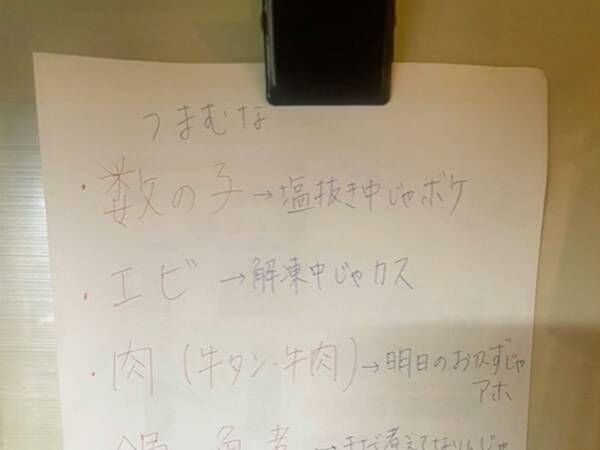 つまむな
・数の子→塩抜き中じゃボケ
・エビ→解凍中じゃカス
・肉(牛タン・牛肉)→明日のおかずじゃ
アホ